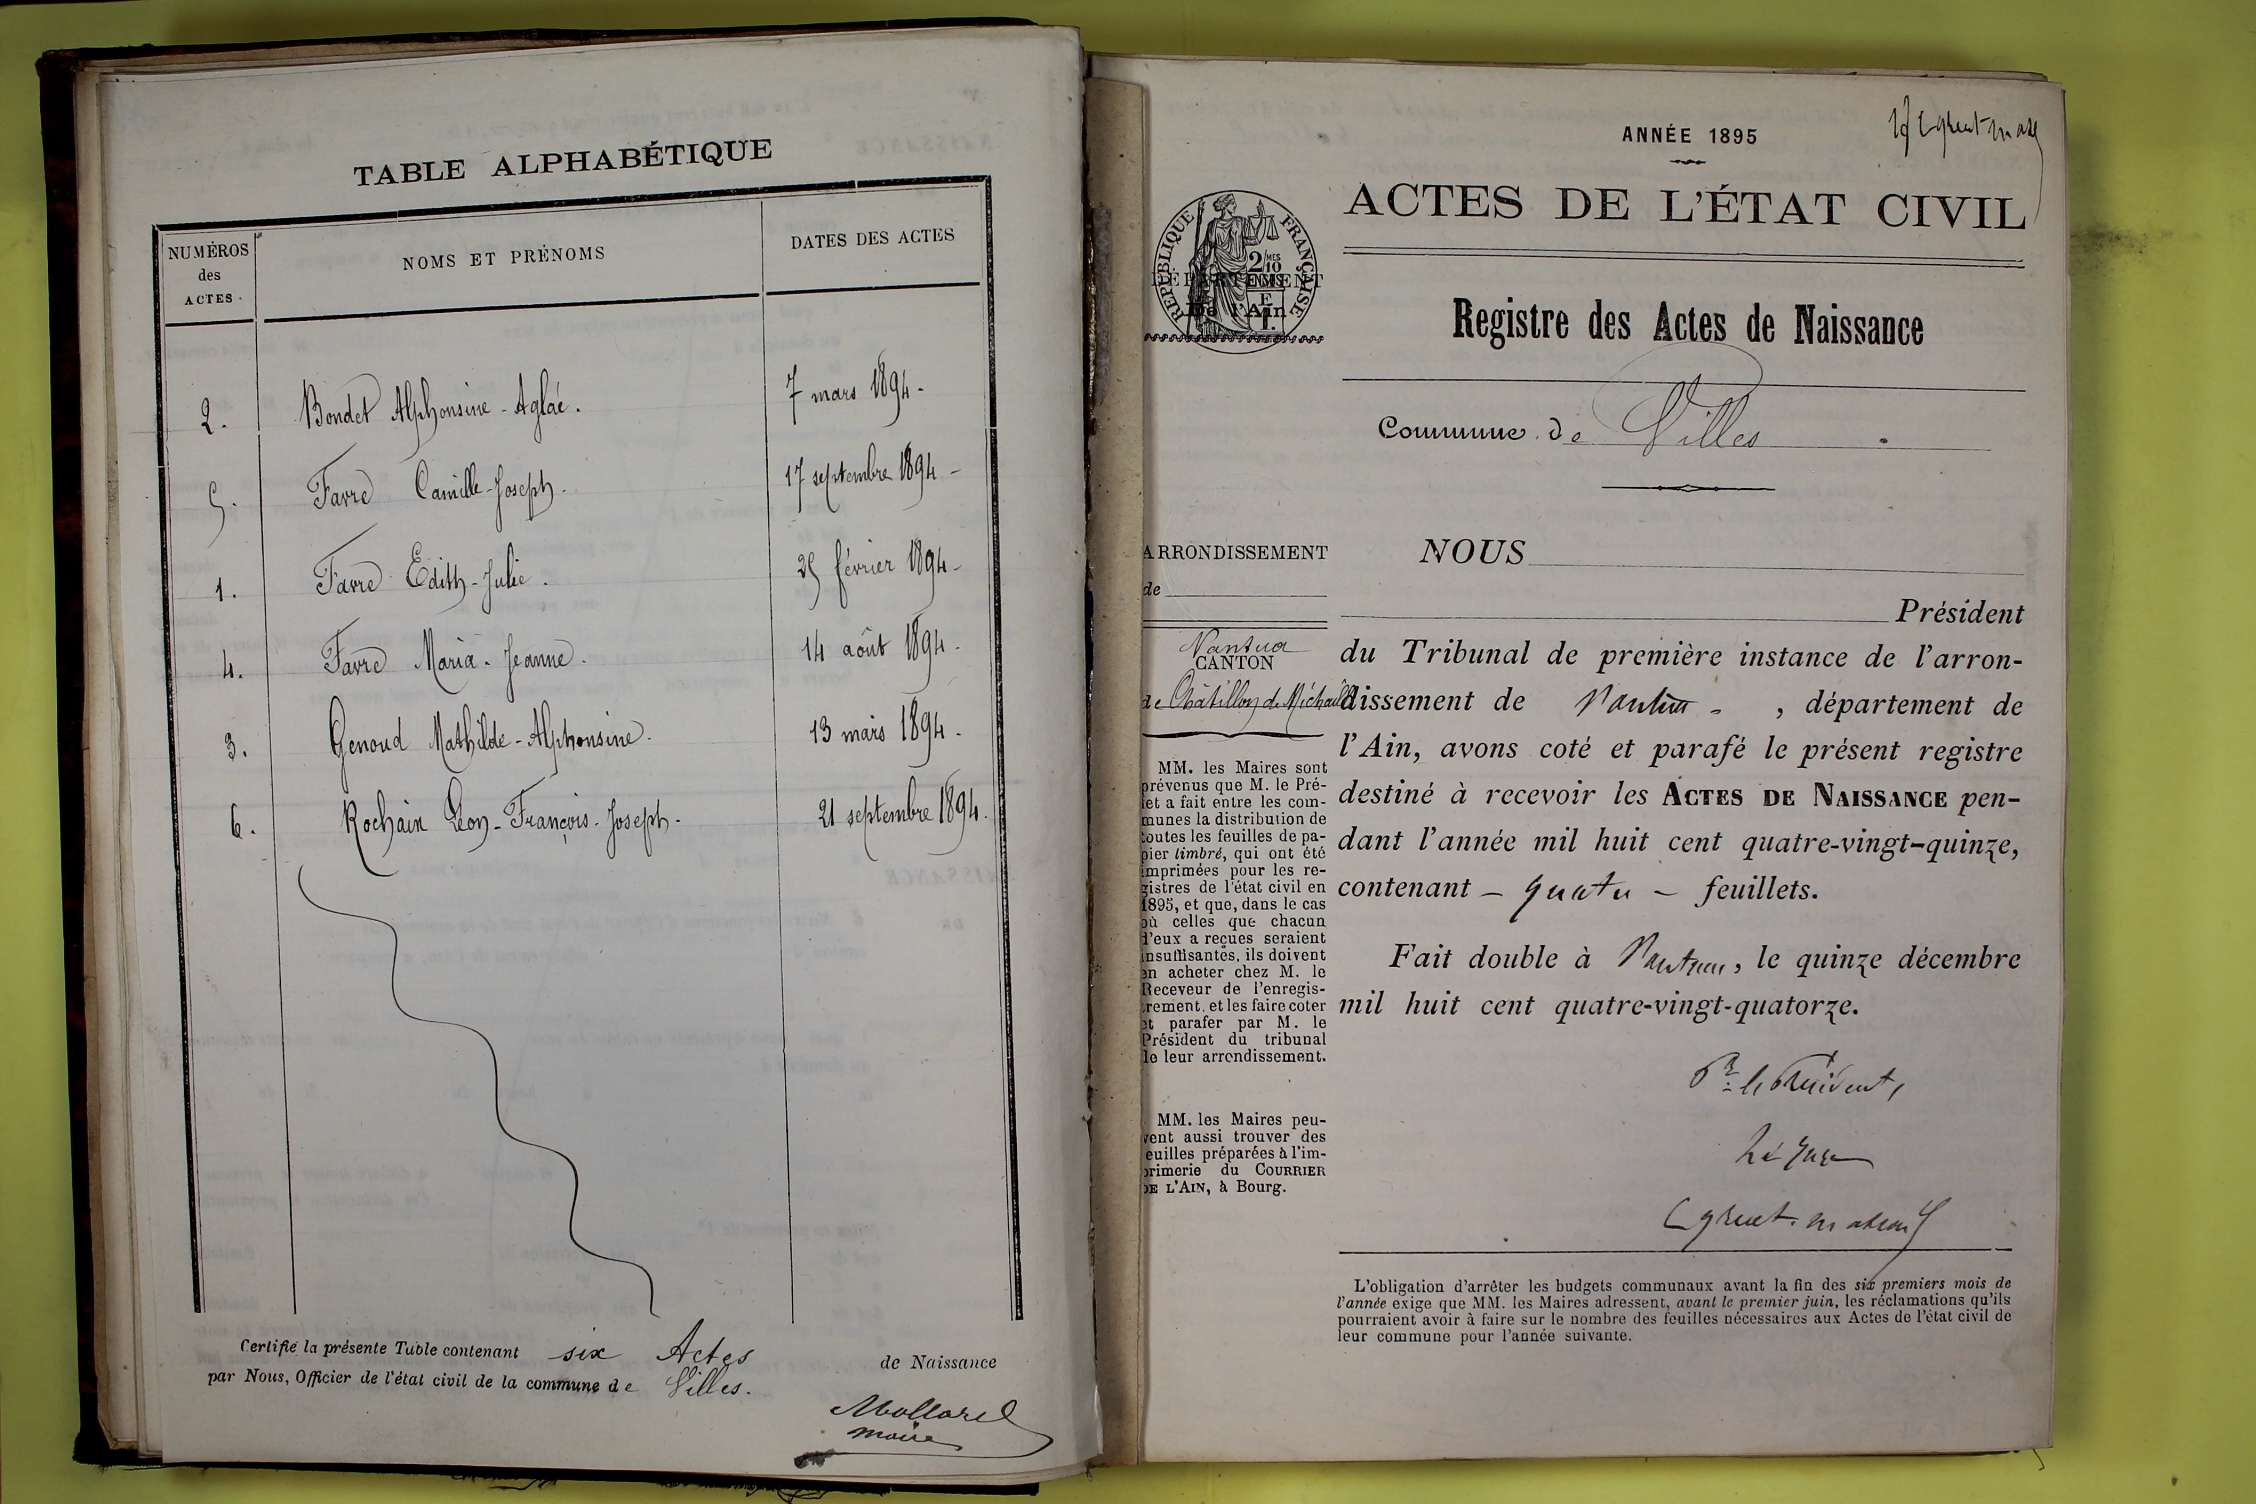 TABLE ALPHABÉTIQUE
NUMÉROS des ACTES
NOMS ET PRÉNOMS
DATES DES ACTES
2. Bondet Alphonsine - Aglaé. 7 mars 1894 -
5. Favre Camille - Joseph. 17 septembre 1894 -
1. Favre Edith - Julie. 25 février 1894 -
4. Favre Maria - Jeanne. 14 août 1894 -
3. Genoud Mathilde - Alphonsine. 13 mars 1894 -
6. Rochaix Léon - François - Joseph. 21 septembre 1894.
Certifié la présente Table contenant six Actes de Naissance
par Nous, Officier de l'état civil de la commune de Villes.
maire
ANNÉE 1895
ACTES DE L'ÉTAT CIVIL
RÉPUBLIQUE FRANÇAISE
2/10 MES
EN SUS
DÉPARTEMENT
De l'Ain
Registre des Actes de Naissance
Commune de Villes
ARRONDISSEMENT
de
Nantua
CANTON
de Châtillon de Michaille
MM. les Maires sont
prévenus que M. le Pré-
fet a fait entre les com-
munes la distribution de
toutes les feuilles de pa-
pier timbré, qui ont été
imprimées pour les re-
gistres de l'état civil en
1895, et que, dans le cas
où celles que chacun
d'eux a reçues seraient
insuffisantes, ils doivent
en acheter chez M. le
Receveur de l'enregis-
trement, et les faire coter
et parafer par M. le
Président du tribunal
de leur arrondissement.
MM. les Maires peu-
vent aussi trouver des
feuilles préparées à l'im-
primerie du COURRIER
DE L'AIN, à Bourg.
NOUS
Président
du Tribunal de première instance de l'arron-
dissement de Nantua - , département de
l'Ain, avons coté et parafé le présent registre
destiné à recevoir les ACTES DE NAISSANCE pen-
dant l'année mil huit cent quatre-vingt-quinze,
contenant - quatre - feuillets.
Fait double à Nantua, le quinze décembre
mil huit cent quatre-vingt-quatorze.
Pr le Président,
L'obligation d'arrêter les budgets communaux avant la fin des six premiers mois de
l'année exige que MM. les Maires adressent, avant le premier juin, les réclamations qu'ils
pourraient avoir à faire sur le nombre des feuilles nécessaires aux Actes de l'état civil de
leur commune pour l'année suivante.